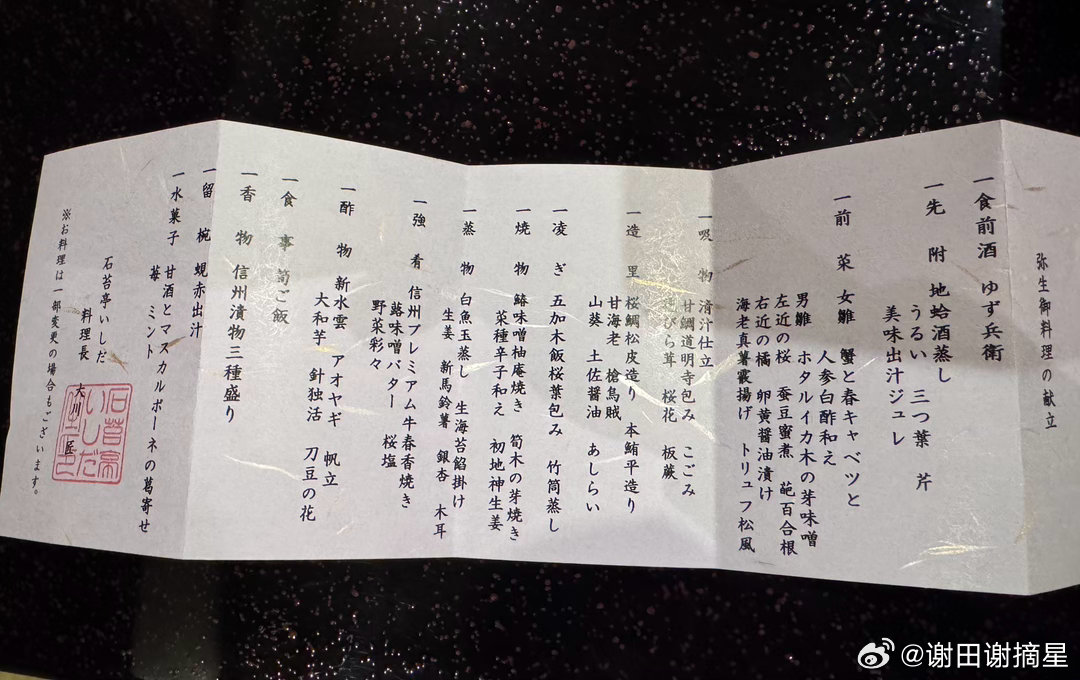 弥生御料理の献立
一食前酒 ゆず兵衛
一先 附 地蛤酒蒸し
うるい 三つ葉 芹
美味出汁ジュレ
一前 菜 女雛 蟹と春キャベツと
人参白酢和え
男雛 ホタルイカ木の芽味噌
左近の桜 蚕豆蜜煮 葩百合根
右近の橘 卵黄醤油漬け
海老真薯霰揚げ トリュフ松風
一吸 物 清汁仕立
甘鯛道明寺包み こごみ
花びら茸 桜花 板蕨
一造 里 桜鯛松皮造り 本鮪平造り
甘海老 槍烏賊
山葵 土佐醤油 あしらい
一凌 ぎ 五加木飯桜葉包み 竹筒蒸し
一焼 物 鰆味噌柚庵焼き 筍木の芽焼き
菜種辛子和え 初地神生姜
一蒸 物 白魚玉蒸し 生海苔餡掛け
生姜 新馬鈴薯 銀杏 木耳
一強 肴 信州プレミアム牛春香焼き
蕗味噌バター 桜塩
野菜彩々
一酢 物 新水雲 アオヤギ 帆立
大和芋 針独活 刀豆の花
一食 事 筍ご飯
一香 物 信州漬物三種盛り
一留 椀 蜆赤出汁
一水菓子 甘酒とマスカルポーネの葛寄せ
苺 ミント
石苔亭いしだ
料理長 大川 匠
石苔亭いしだ
※お料理は一部変更の場合もございます。
@谢田谢摘星